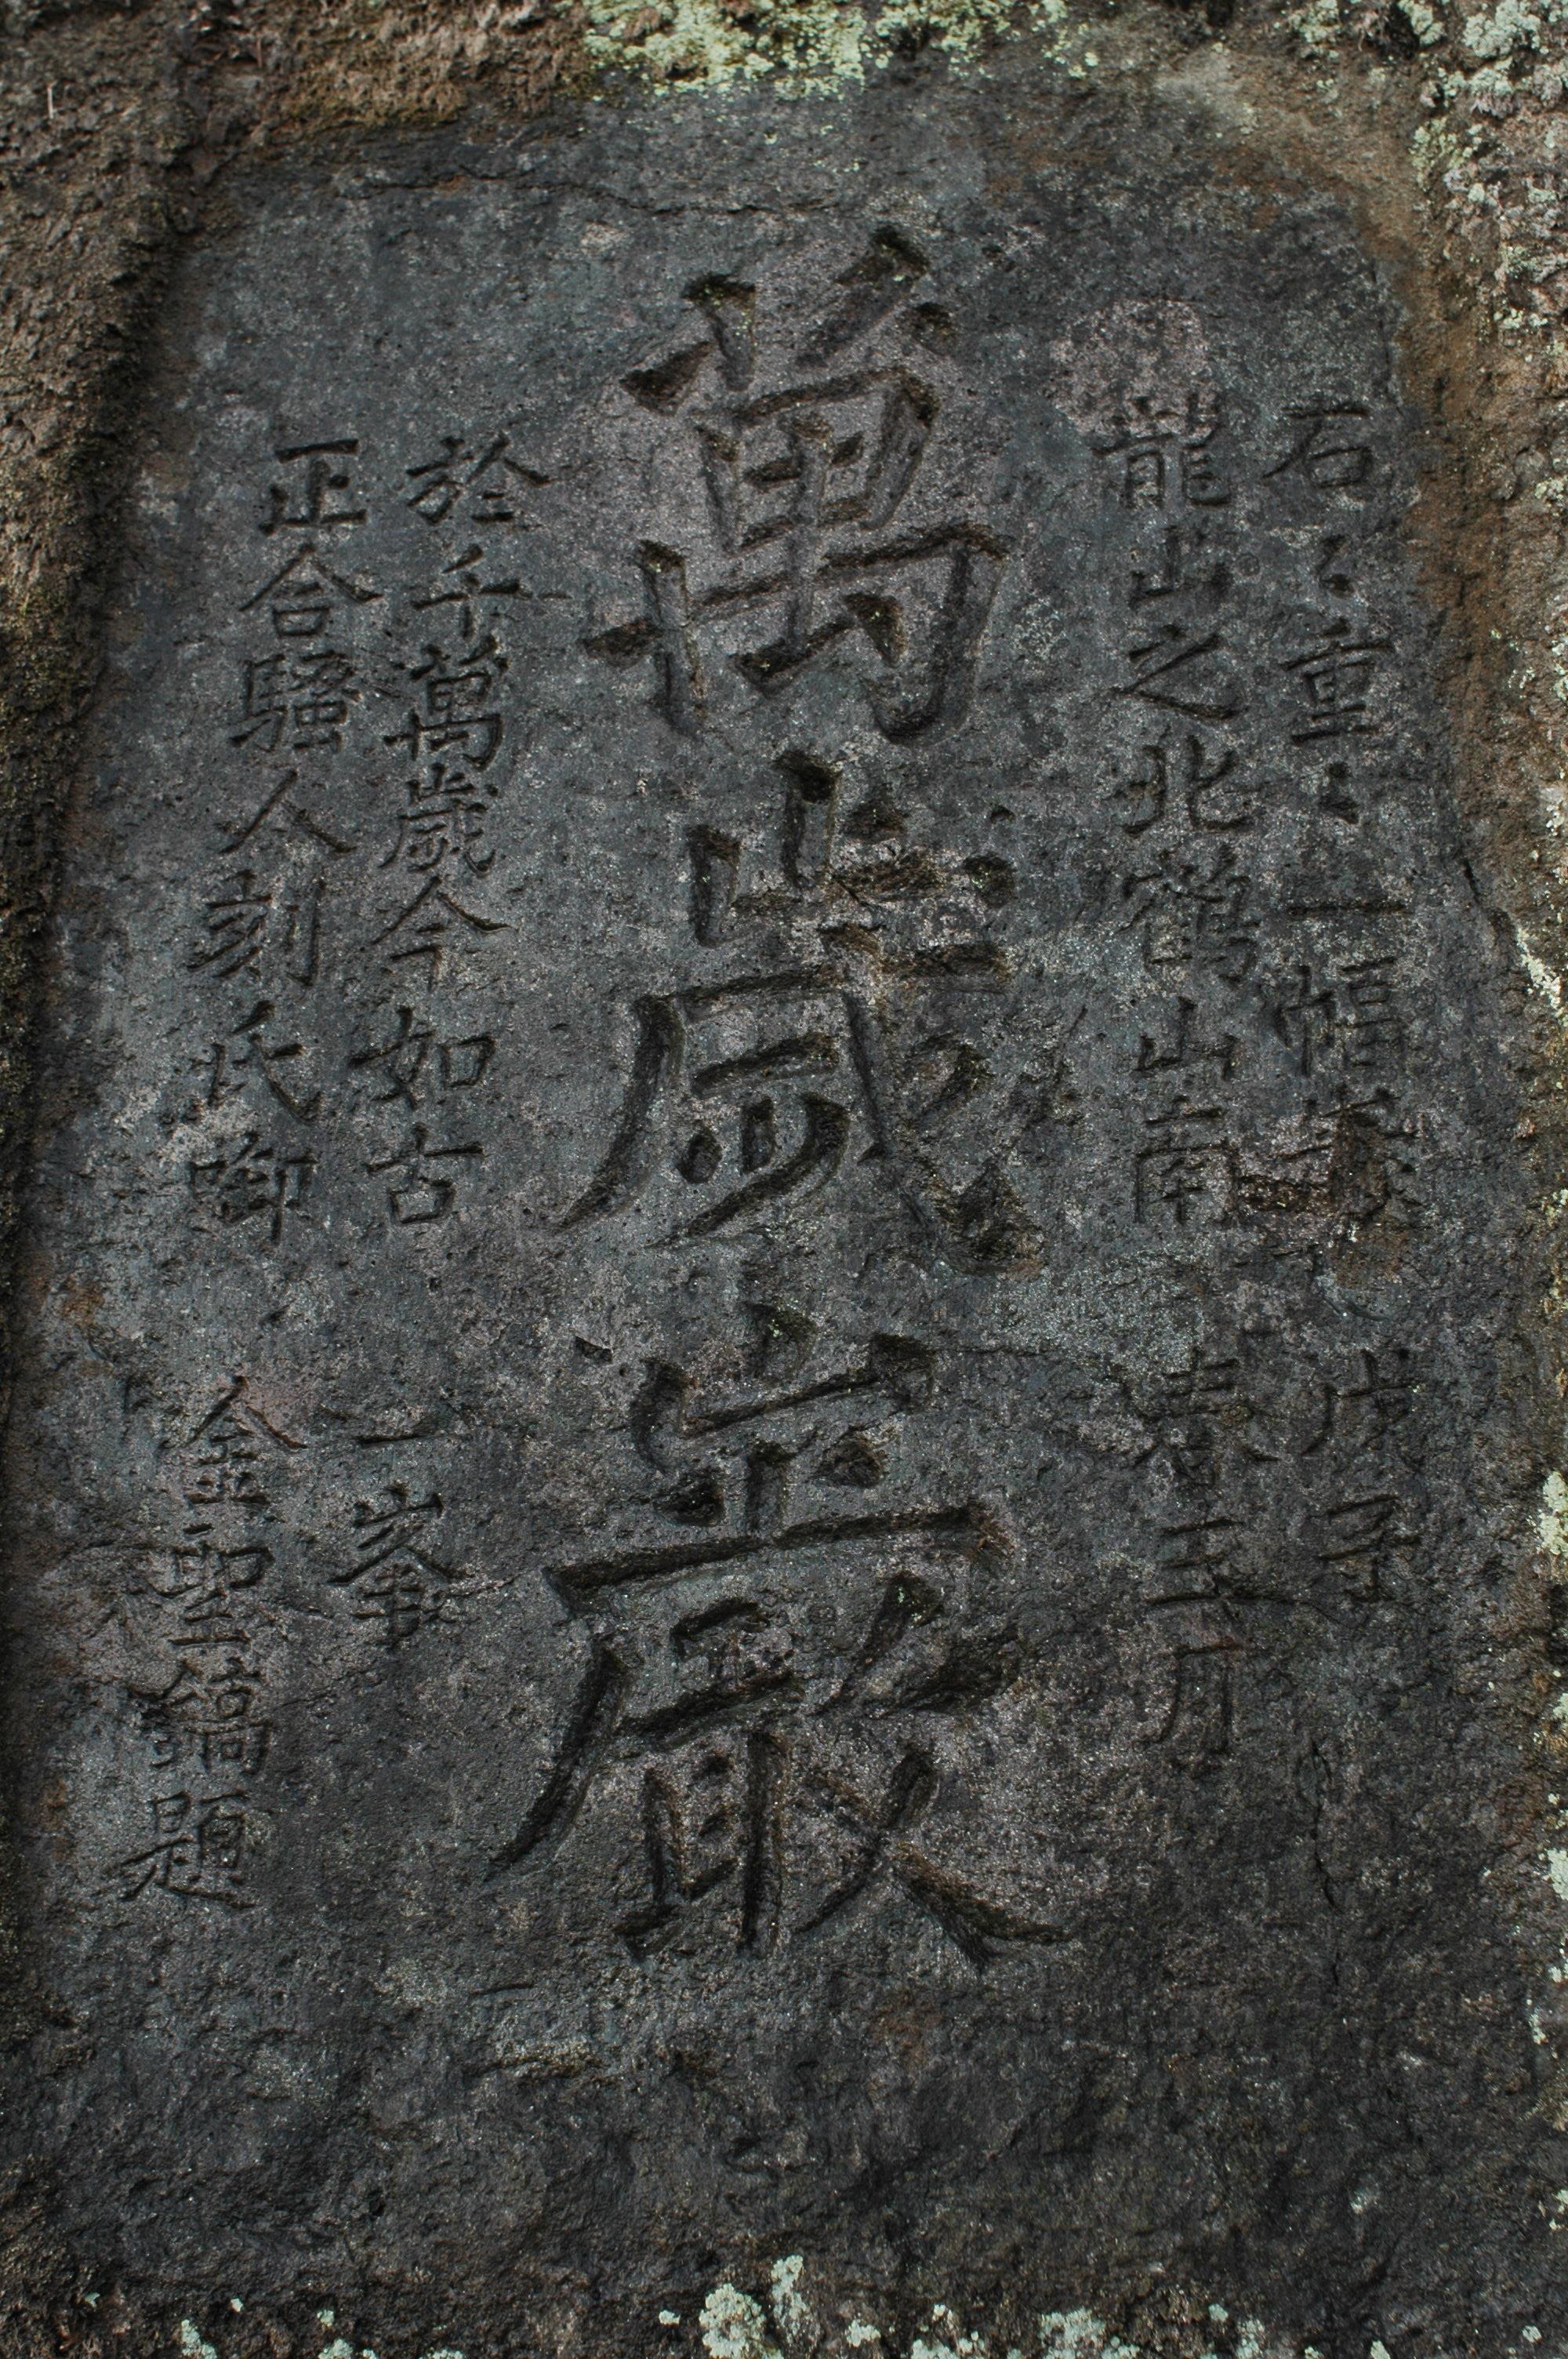 石〻重〻一幅 戊子
龍山之北鶴山南 春三月
萬歲巌
於千萬歲今如古 一峯
正合騷人刻氏啣 金聖鎬題